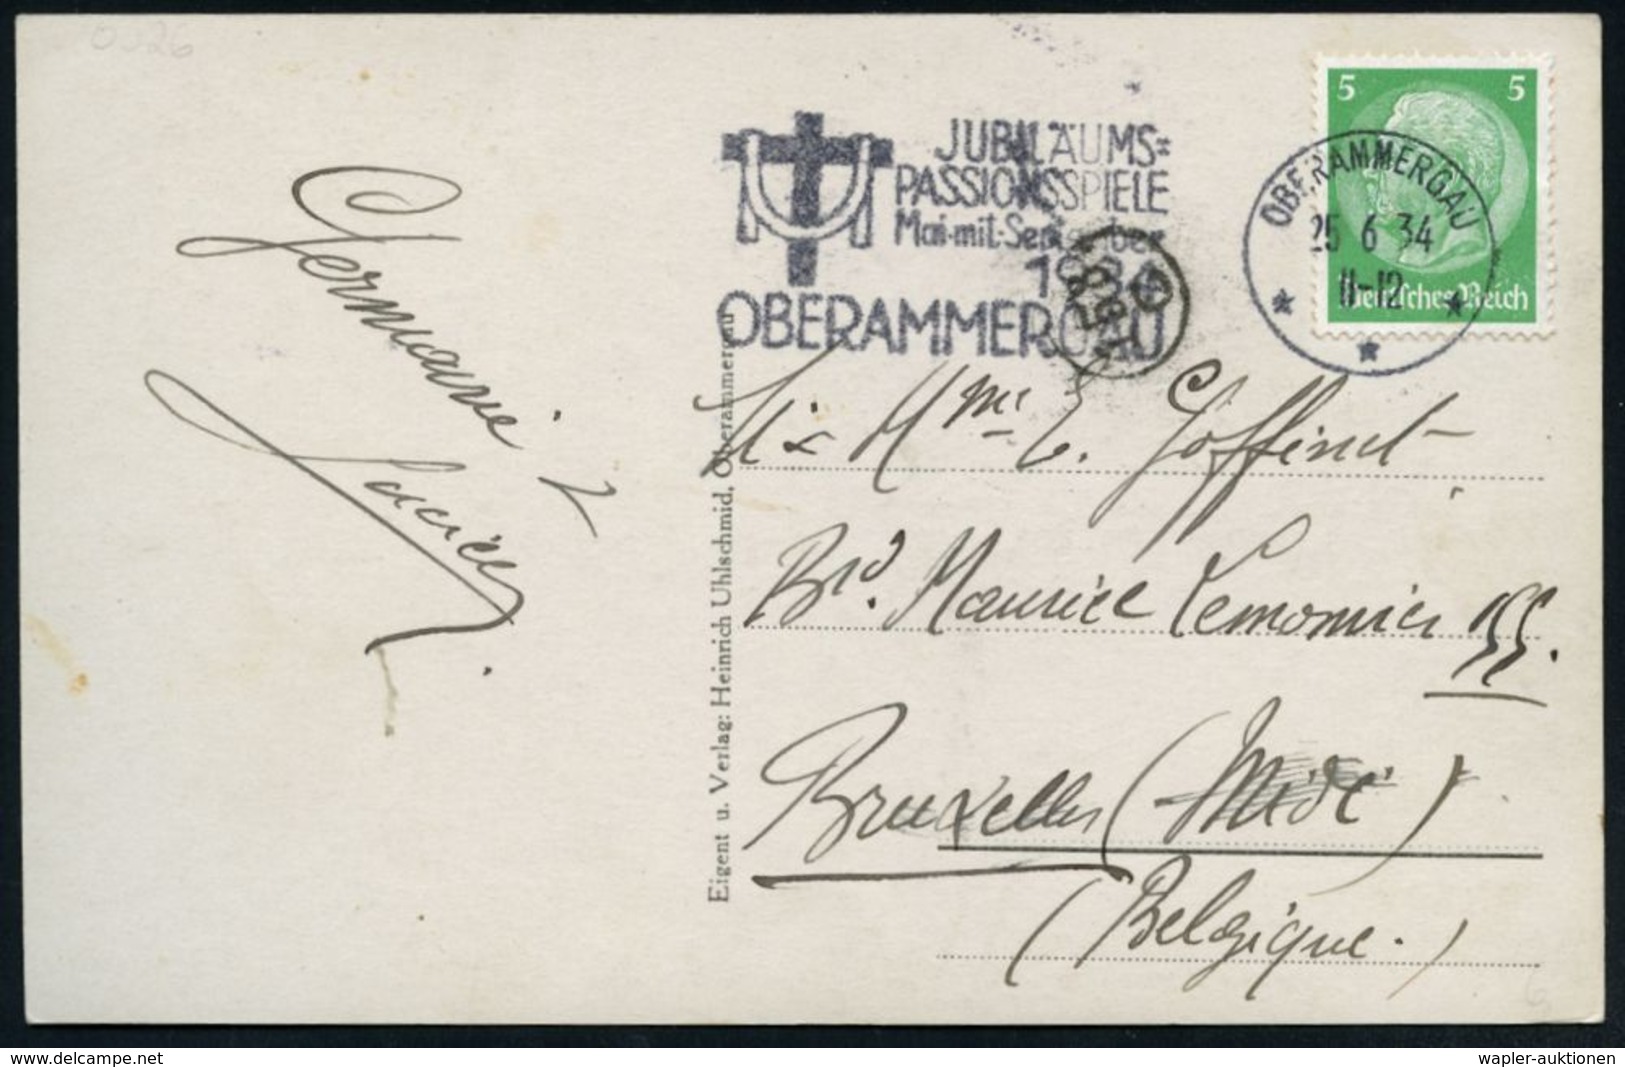 0026
JUBILÄUMS=
PASSIONSSPIELE
Mai-mit-September
1934
OBERAMMERGAU
5 5
Deutsches Reich
OBERAMMERGAU
25 6 34
11-12
Germaine
Eigent u. Verlag: Heinrich Uhlschmid, Oberammergau
Mme E. Goffinet
Bvd. Maurice Lemonnier 155.
Bruxelles (Midi)
(Belgique.)
www.delcampe.net
wapler-auktionen